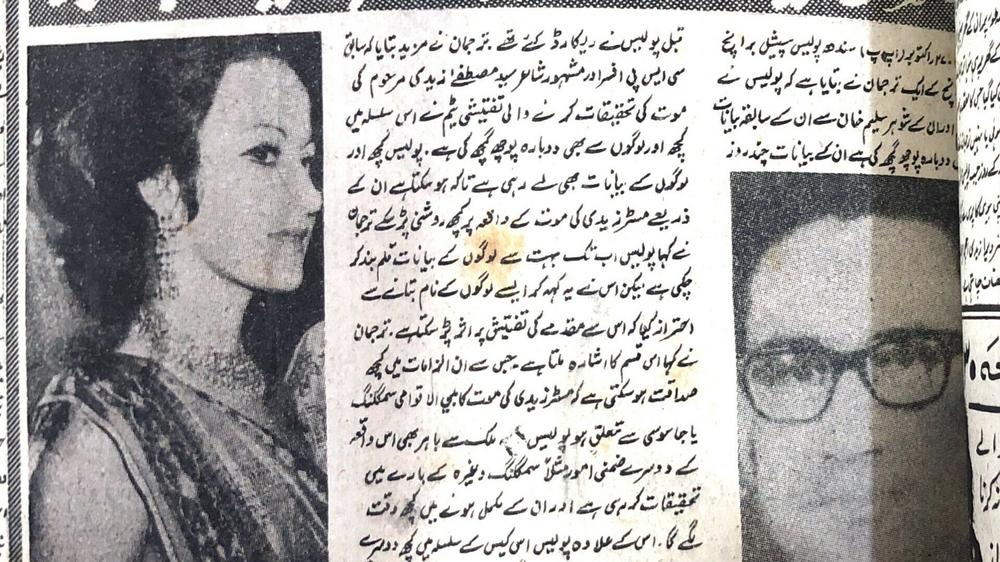 ۲۷؍اکتوبر (پ پ ا) سندھ پولیس سپیشل برانچ
کے ایک ترجمان نے بتایا ہے کہ پولیس نے
اور ان کے شوہر سلیم خان سے ان کے سابقہ بیانات
دوبارہ پوچھ گچھ کی ہے ان کے بیانات چند روز
قبل پولیس نے ریکارڈ کئے تھے ۔ ترجمان نے مزید بتایا کہ سابق
سی ایس پی افسر اور مشہور شاعر سید مصطفےٰ زیدی مرحوم کی
موت کی تحقیقات کرنے والی تفتیشی ٹیم نے اس سلسلہ میں
کچھ اور لوگوں سے بھی دوبارہ پوچھ گچھ کی ہے ۔ پولیس کچھ اور
لوگوں کے بیانات بھی لے رہی ہے تاکہ ہو سکتا ہے ان کے
ذریعے مسٹر زیدی کی موت کے واقعہ پر کچھ روشنی پڑ سکے ترجمان
نے کہا پولیس اب تک بہت سے لوگوں کے بیانات قلم بند کر
چکی ہے لیکن اس نے یہ کہہ کر ایسے لوگوں کے نام بتانے سے
احتراز کیا کہ اس سے مقدمے کی تفتیش پر اثر پڑ سکتا ہے ۔ ترجمان
نے کہا اس قسم کا اشارہ ملتا ہے جس سے ان الزامات میں کچھ
صداقت ہو سکتی ہے کہ مسٹر زیدی کی موت کا بین الاقوامی سمگلنگ
یا جاسوسی سے تعلق ہو پولیس ملک سے باہر بھی اس واقعہ
کے دوسرے ضمنی امور مثلاً سمگلنگ وغیرہ کے بارے میں
تحقیقات کر رہی ہے اور ان کے مکمل ہونے میں کچھ وقت
لگے گا ۔ اس کے علاوہ پولیس اس کیس کے سلسلہ میں کچھ دوسرے